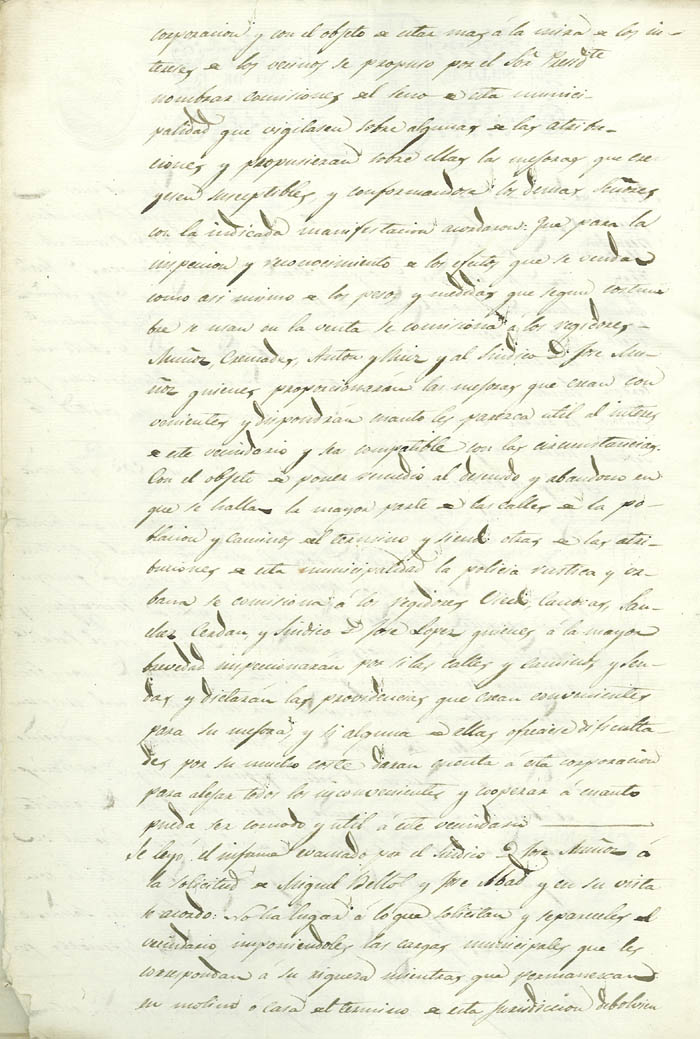 corporacion y con el objeto de estar mas á la mira de los in-
tereses de los vecinos se propuso por el Sor. Presidte
nombrar comisiones del seno de esta munici-
palidad que vigilasen sobre algunas de las atribu-
ciones y propusieran sobre ellas las mejoras que cre-
yesen susceptibles, y conformandose los demas Señores
con la indicada manifestacion acordaron: Que para la
inspecion y reconocimiento de los efectos que se vendan
como asi mismo de los pesos y medidas que segun costum
bre se usan en la venta se comisiona á los regidores
Muñoz, Cremades, Anton y Ruiz y al Sindico D. Jose Mu-
ñoz quienes proporcionarán las mejoras que crean con
venientes y dispondran cuanto les paresca util al interes
de este vecindario y sea compatible con las circunstancias.
Con el objeto de poner remedio al descuido y abandono en
que se halla la mayor parte de las calles de la po-
blacion y caminos del termino y siendo otras de las atri-
buciones de esta municipalidad la policia rustica y ur-
bana se comisiona á los regidores Canovas, San-
chez Cerdan, y Sindico D. Jose Lopez quienes á la mayor
brevedad inspecionarán por si las calles y caminos y sen-
das y dictarán las providencias que crean convenientes
para su mejora, y si alguna de ellas ofreciese dificulta-
des por su mucho coste daran cuenta á esta corporacion
para alejar todos los inconvenientes y cooperar á cuanto
pueda ser comodo y util á este vecindario
Se leyó el informe evacuado por el Sindico D. Jose Muñoz á
la solicitud de Miguel Beltol y Jose Abad y en su vista
se acordo: No ha lugar á lo que solicitan y separeseles del
vecindario imponiendoles las cargas municipales que les
correspondan a su riqueza mientras que permanescan
en molino o casa del termino de esta jurisdiccion debolvien